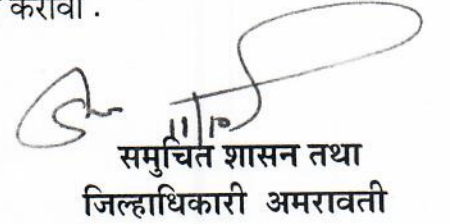 करावी .
11/10
समुचित शासन तथा
जिल्हाधिकारी अमरावती